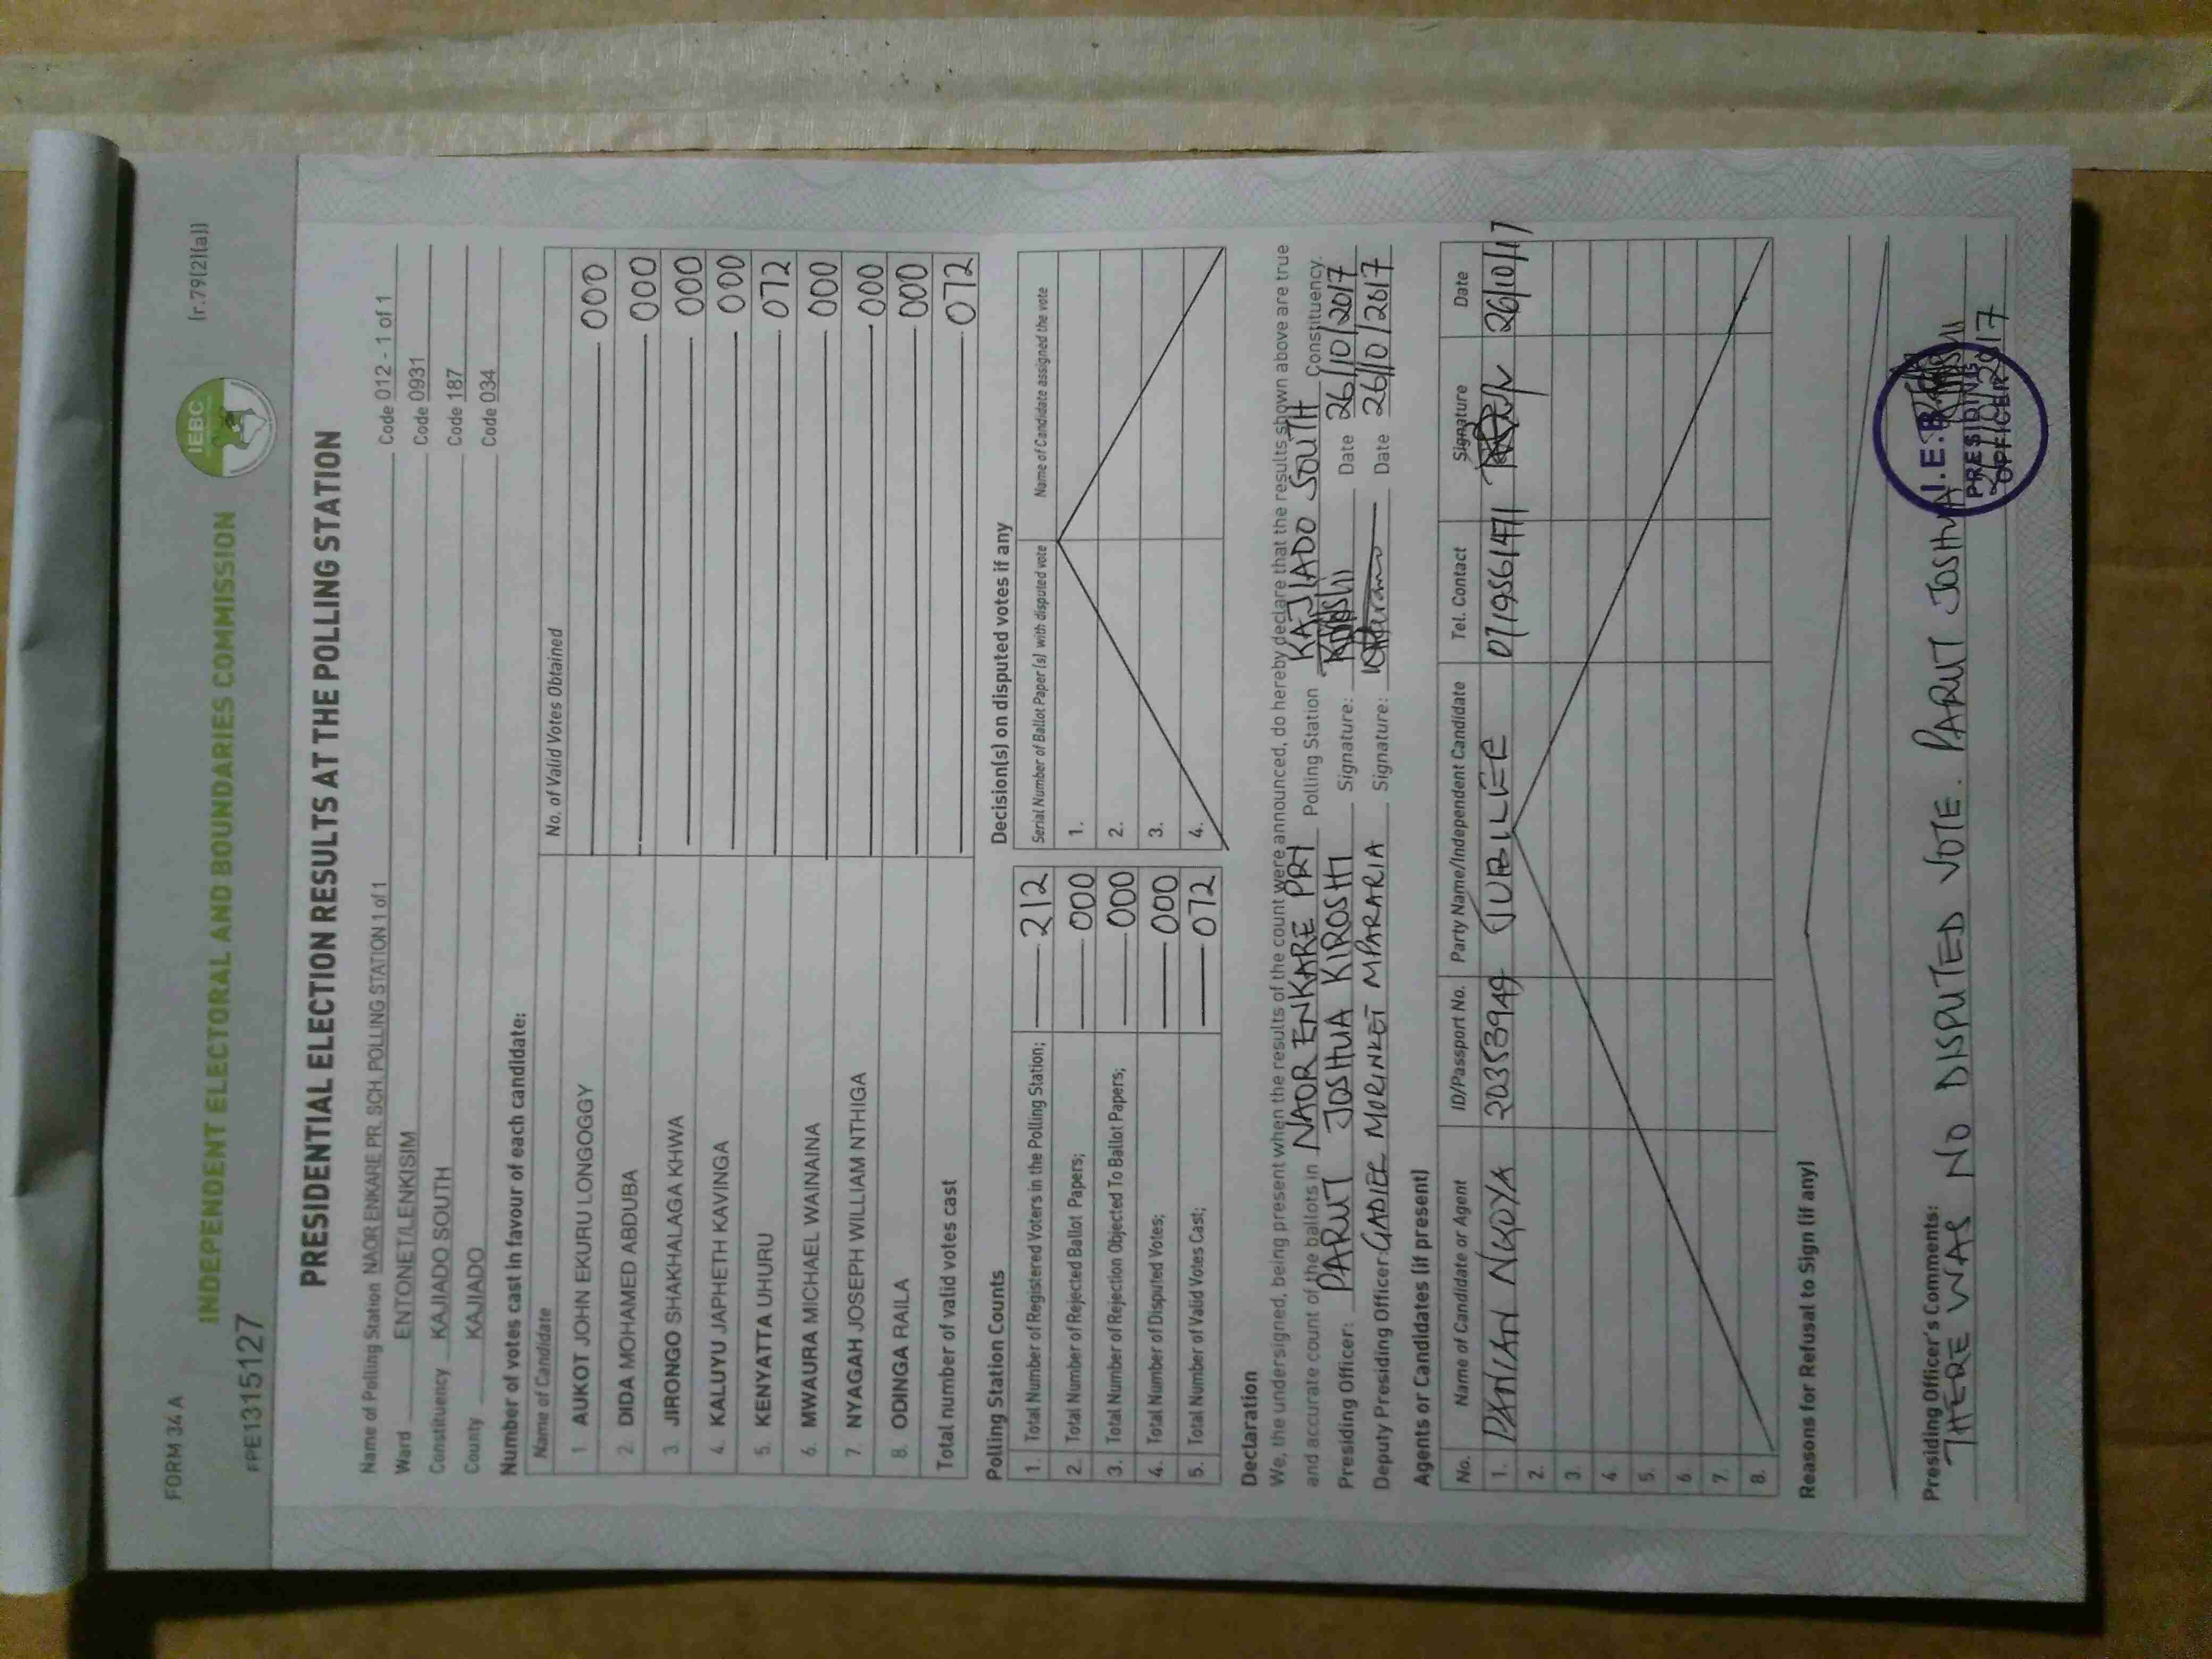 FORM 34 A
(r.79(2)(a))
IEBC
INDEPENDENT ELECTORAL AND BOUNDARIES COMMISSION
FPE1315127
PRESIDENTIAL ELECTION RESULTS AT THE POLLING STATION
Name of Polling Station NAOR ENKARE PR. SCH. POLLING STATION 1 of 1 Code 012 - 1 of 1
Ward ENTONET/LENKISIM Code 0931
Constituency KAJIADO SOUTH Code 187
County KAJIADO Code 034
Number of votes cast in favour of each candidate:
Name of Candidate No. of Valid Votes Obtained
1 AUKOT JOHN EKURU LONGOGGY 000
2. DIDA MOHAMED ABDUBA 000
3. JIRONGO SHAKHALAGA KHWA 000
4. KALUYU JAPHETH KAVINGA 000
5. KENYATTA UHURU 072
6. MWAURA MICHAEL WAINAINA 000
7. NYAGAH JOSEPH WILLIAM NTHIGA 000
8. ODINGA RAILA 000
Total number of valid votes cast 072
Polling Station Counts
1. Total Number of Registered Voters in the Polling Station; 212
2. Total Number of Rejected Ballot Papers; 000
3. Total Number of Rejection Objected To Ballot Papers; 000
4. Total Number of Disputed Votes; 000
5. Total Number of Valid Votes Cast; 072
Decision(s) on disputed votes if any
Serial Number of Ballot Paper (s) with disputed vote Name of Candidate assigned the vote
1.
2.
3.
4.
Declaration
We, the undersigned, being present when the results of the count were announced, do hereby declare that the results shown above are true
and accurate count of the ballots in NAOR ENKARE PRI Polling Station KAJIADO SOUTH Constituency.
Presiding Officer: PARUT JOSHUA KIROSHI Signature: Date 26/10/2017
Deputy Presiding Officer: GADIEL MORINKET MPARARIA Signature: Date 26/10/2017
Agents or Candidates (if present)
No. Name of Candidate or Agent ID/Passport No. Party Name/Independent Candidate Tel. Contact Signature Date
1. 20353949 JUBILEE 0719561471 26/10/17
2.
3.
4.
5.
6.
7.
8.
Reasons for Refusal to Sign (if any)
Presiding Officer's Comments:
THERE WAS NO DISPUTED VOTE. PARUT JOSHUA
26/10/2017
I.E.B.C
PRESIDING
OFFICER